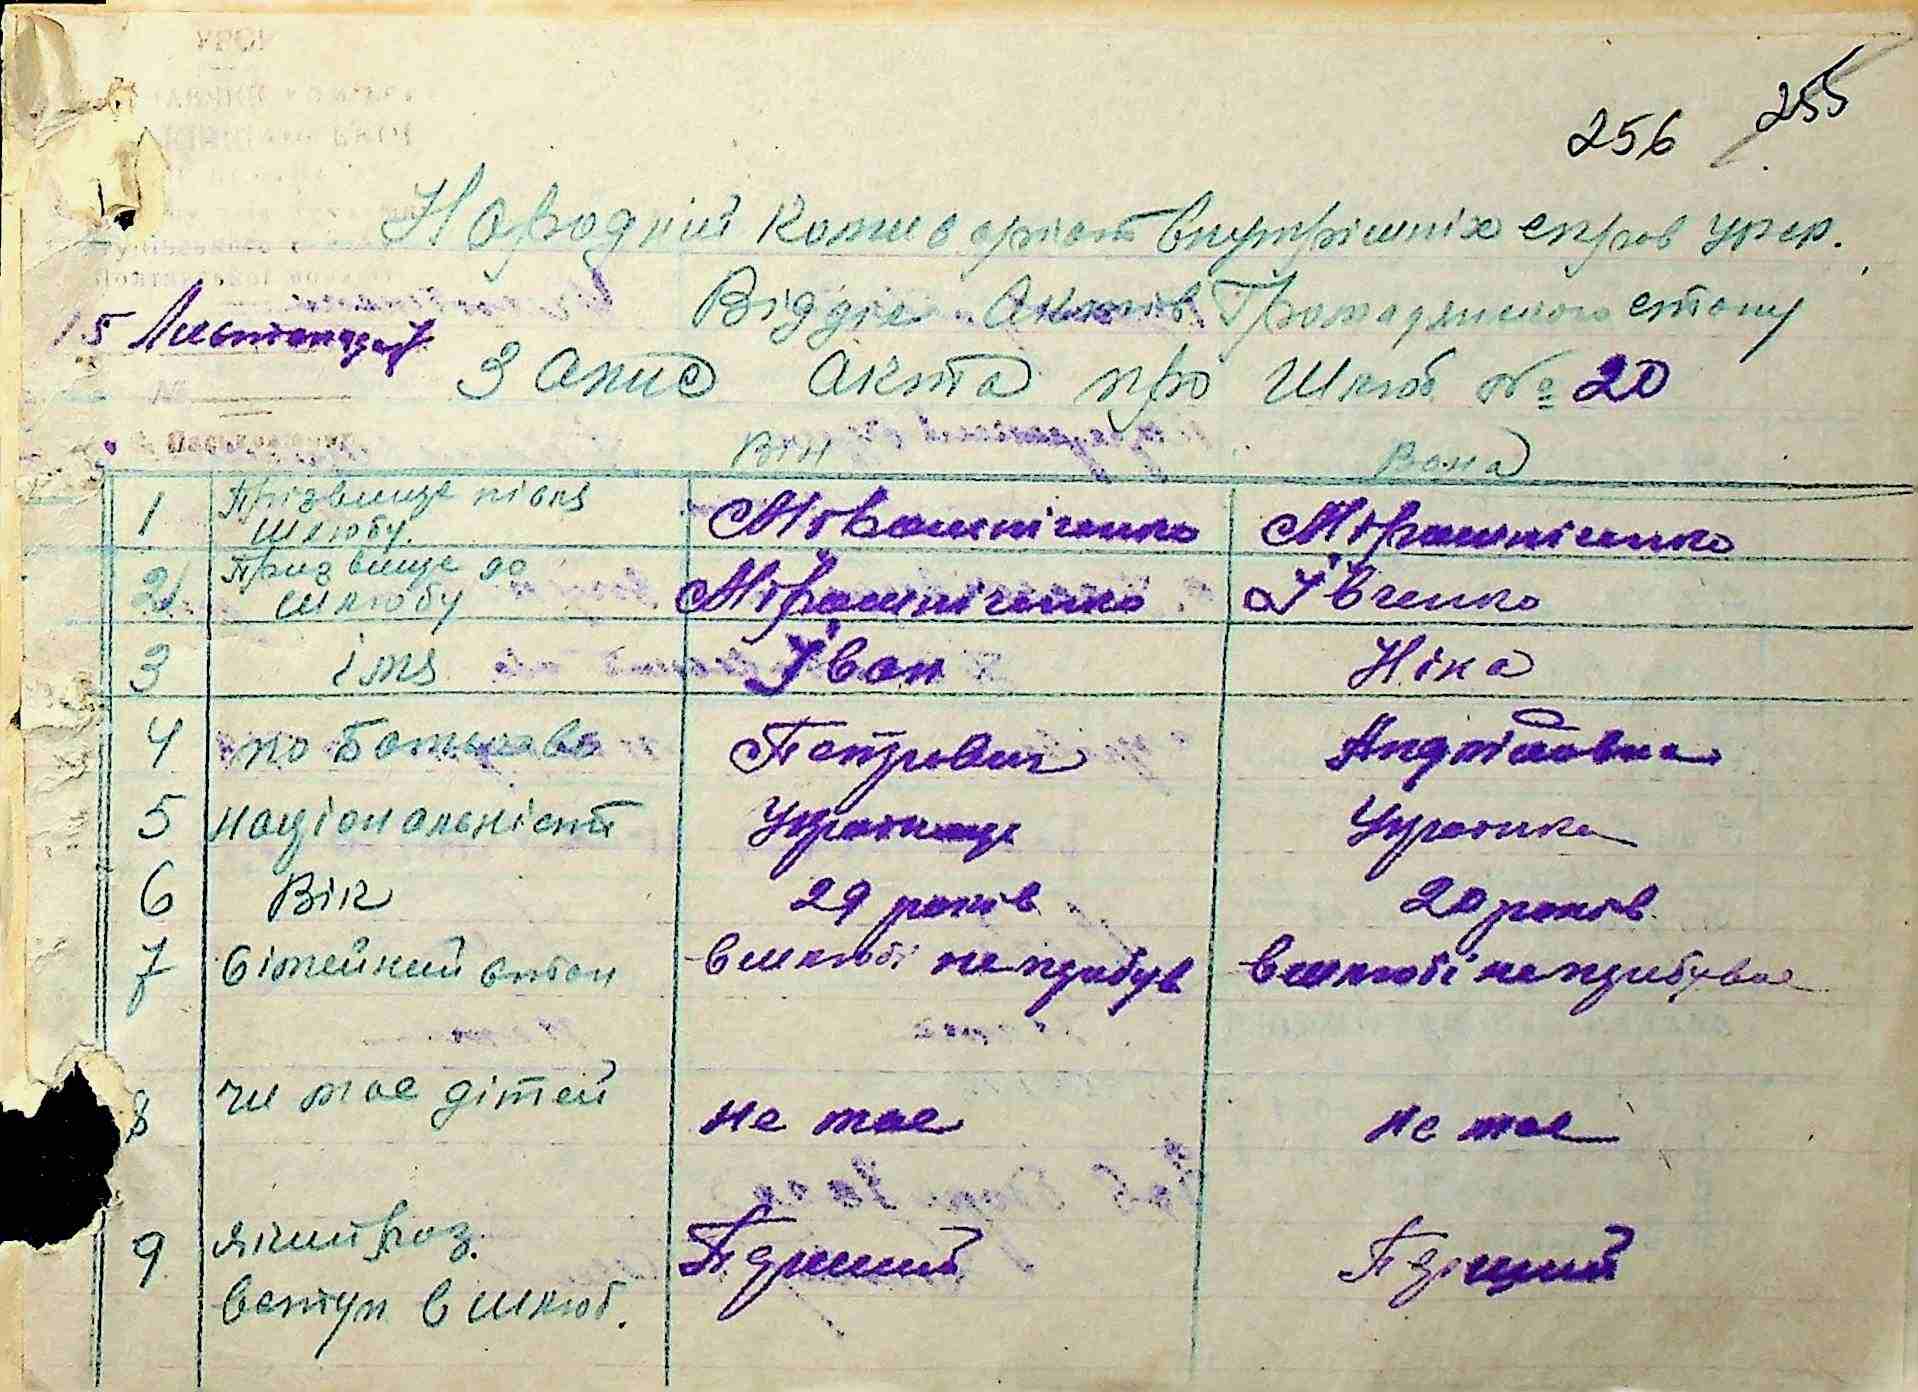 256 255
Народній Комисаріат Внутрішніх справ УРСР.
Відділ Актів Громадянского стану
15 Листопада
Запис Акта про Шлюб № 20
Він Вона
1 Прізвище після шлюбу. Мірошніченко Мірошніченко
2 Призвище до шлюбу Мірошніченко Івченко
3 імя Іван Ніка
4 по Батькові Петрович Андріївна
5 національність Українець Українка
6 Вік 29 років 20 років
7 Сімейний стан в шлюбі не прибув в шлюбі не прибувае
8 чи мае дітей не мае не мае
9 який раз. вступ в шлюб. Перший Перший